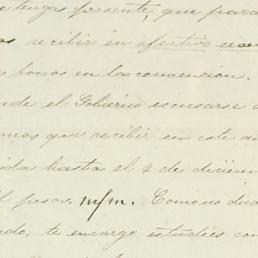 tengas presente, que para
recibir en efectivo
bonos en la convención.
el Gobierno escusarse
que recibir en este
hasta el 4 de diciem
pesos m/m. Como no dud
do, te encargo estudies con